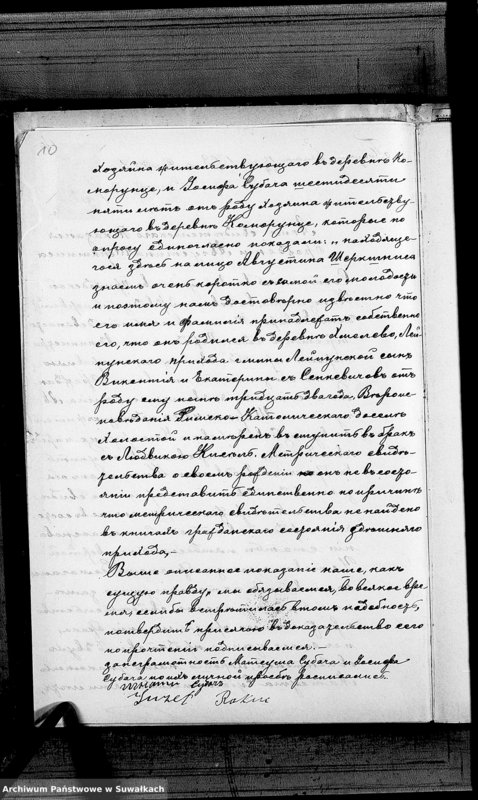 10
хозяина жительствующаго въ деревнѣ Ко-
морунце, и Іосифа Субача шестидесяти
пяти лѣтъ отъ роду хозяина жительству-
ющаго въ деревнѣ Коморунце, которые по
опросу единогласно показали: „находяще-
гося здѣсь на лицо Августина Шеркшниса
знаемъ очень коротко съ самой его молодости
и поэтому намъ достовѣрно извѣстно что
его имя и фамилія принадлежатъ собственно
ему, что онъ родился въ деревнѣ Хмѣлево, Лей-
пунскаго прихода гмины Лейпунской сынъ
Викентія и Екатерины съ Сенкевичовъ отъ
роду ему лѣтъ тридцать два года, Вѣроис-
повѣданія Римско-Католическаго доселѣ
Холостой и намѣренъ вступить въ бракъ
съ Людвикою Метрическаго свидѣ-
тельства о своемъ рожденіи онъ не въ состо-
яніи представить единственно по причинѣ
что метрическаго свидѣтельства не найдено
въ книгахъ гражданскаго состоянія
прихода,-
Выше описанное показаніе наше, какъ
сущую правду, мы обязываемся, во всякое вре-
мя, если бы встрѣтилась въ томъ надобность,
потвердить присягою въ доказательство сего
по прочтеніи подписываемся.-
за неграмотность Матеуша Субача и Іосифа
Субача по ихъ личной просьбѣ росписались.
Игнатій Субачъ
Juzef
Archiwum Państwowe w Suwałkach